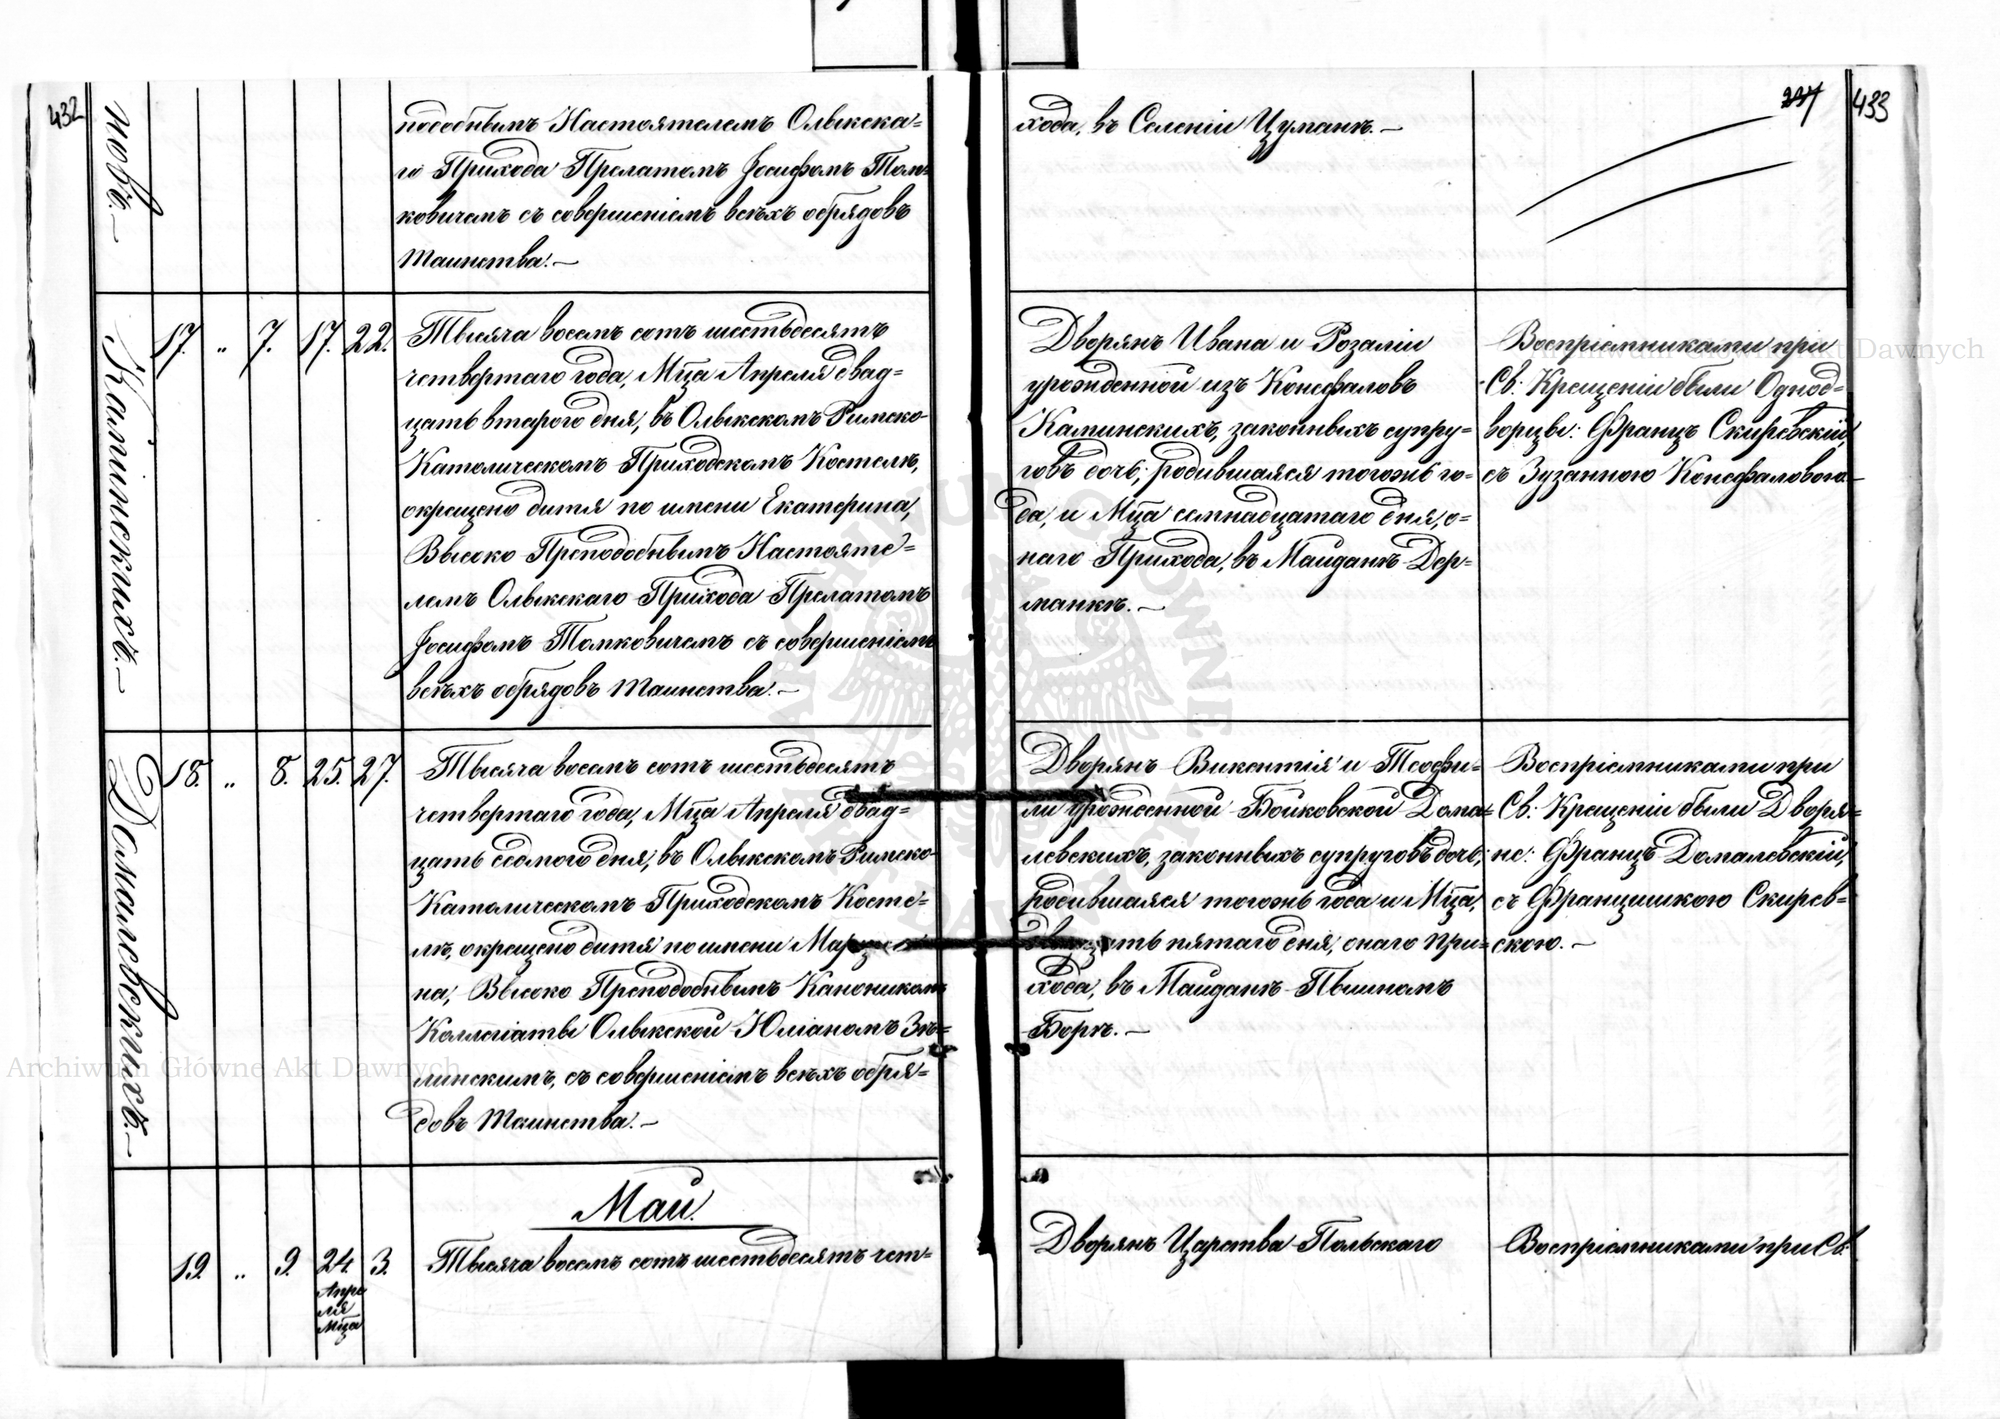 432
237
433
новъ.—
подобнымъ Настоятелемъ Олыкска=
го Прихода Прелатомъ Іосифомъ Том=
ковичемъ съ совершеніемъ всѣхъ обрядовъ
Таинства.—
хода, въ Селеніи Цуманѣ.—
Каминскихъ.—
17. „ 7. 17. 22.
Тысяча восемъ сотъ шестьдесятъ
четвертаго года, Мца Апреля двад=
цать втораго дня, въ Олыкскомъ Римско-
Католическомъ Приходскомъ Костелѣ,
окрещено дитя по имени Екатерина,
Высоко Преподобнымъ Настояте=
лемъ Олыкскаго Прихода Прелатомъ
Іосифомъ Томковичемъ съ совершеніемъ
всѣхъ обрядовъ таинства.—
Дворянъ Ивана и Розаліи
урожденной изъ Консфаловъ
Каминскихъ, законныхъ супру=
говъ дочь, родившаяся тогожъ го=
да, и Мца семнадцатаго дня, о=
наго Прихода, въ Майданѣ-Дер=
манкѣ.—
Воспріемниками при
Св: Крещеніи были Однод=
ворцы: Францъ Скиревскій,
съ Зузанною Консфаловою—
Домалевскихъ.—
18. „ 8. 25. 27.
Тысяча восемъ сотъ шестьдесятъ
четвертаго года, Мца Апреля двад=
цать седмого дня, въ Олыкскомъ Римско-
Католическомъ Приходскомъ Косте=
лѣ, окрещено дитя по имени Марци
на, Высоко Преподобнымъ Каноникомъ
Коллегіаты Олыкской Юліаномъ Зѣ=
линскимъ, съ совершеніемъ всѣхъ обря=
довъ Таинства.—
Дворянъ Викентія и Теофи=
ли урожденной Бойковской Дома=
левскихъ, законныхъ супруговъ дочь,
родившаяся тогожъ года и Мца,
двадцать пятаго дня, онаго При=
хода, въ Майданѣ-Пышномъ
Борѣ.—
Воспріемниками при
Св: Крещеніи были Дворя=
не: Францъ Домалевскій,
съ Францишкою Скирев=
скою.—
Май.
19. „ 9. 24. 3.
Апре
ля
Мца
Тысяча восемъ сотъ шестьдесятъ чет=
Дворянъ Царства Польскаго
Воспріемниками при Св:
Archiwum Główne Akt Dawnych
Archiwum Główne Akt Dawnych